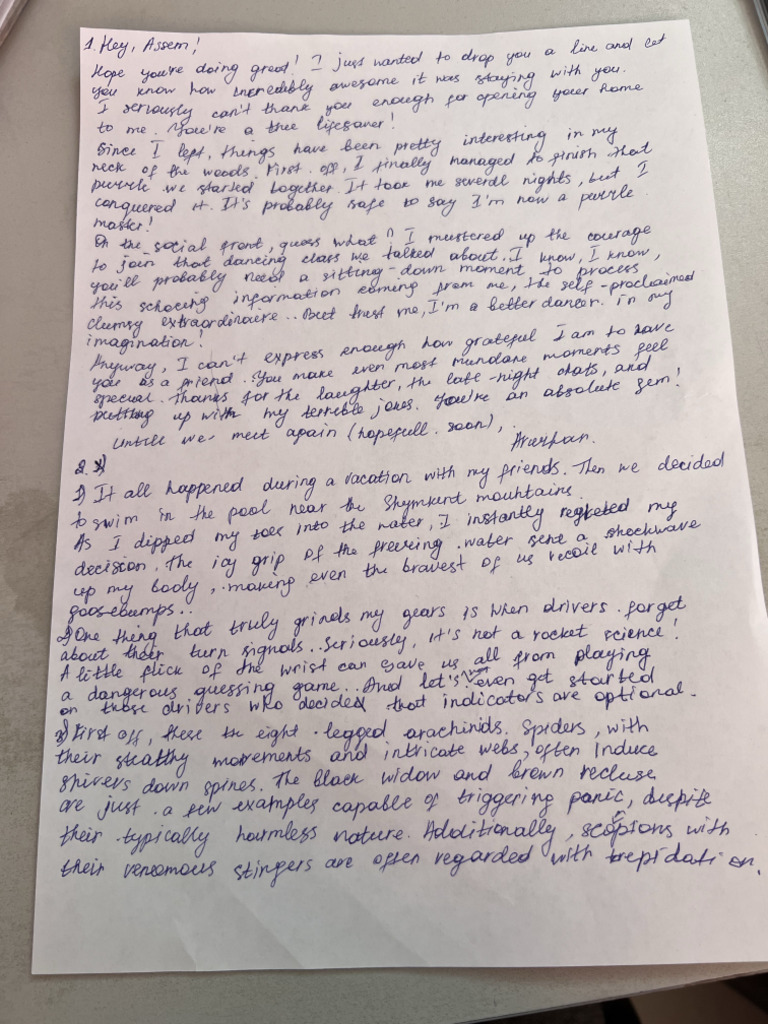 1. Hey, Assem!
Hope you're doing great! I just wanted to drop you a line and let
you know how incredibly awesome it was staying with you.
I seriously can't thank you enough for opening your home
to me. You're a true lifesaver!
Since I left, things have been pretty interesting in my
neck of the woods. First off, I finally managed to finish that
puzzle we started together. It took me several nights, but I
conquered it. It's probably safe to say I'm now a puzzle
master!
On the social front, guess what? I mustered up the courage
to join that dancing class we talked about. I know, I know,
you'll probably need a sitting-down moment to process
this schocing information coming from me, the self-proclaimed
clumsy extraordinaire.. But trust me, I'm a better dancer. in my
imagination!
Anyway, I can't express enough how grateful I am to have
you as a friend. You make even most mundane moments feel
special. Thanks for the laughter, the late-night chats, and
putting up with my terrible jokes. You're an absolute gem!
Untill we meet again (hopefull. soon),
2.
1) It all happened during a vacation with my friends. Then we decided
to swim in the pool near the Shymkent mountains.
As I dipped my toes into the water, I instantly regreted my
decision. The icy grip of the freezing water sent a shockwave
up my body, making even the bravest of us recoil with
goosebumps..
2) One thing that truly grinds my gears is when drivers forget
about their turn signals.. Seriously, it's not a rocket science!
A little flick of the wrist can save us all from playing
a dangerous guessing game.. And let's not even get started
on those drivers who decided that indicators are optional.
3) First off, these the eight-legged arachinids. Spiders, with
their stealthy movements and intricate webs, often induce
shivers down spines. The black widow and brown recluse
are just a few examples capable of triggering panic, despite
their typically harmless nature. Additionally, scorpions with
their venomous stingers are often regarded with trepidation.